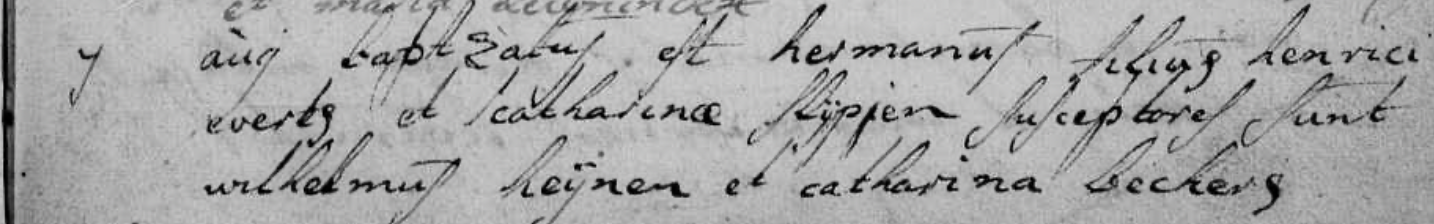 et maria
y aug baptzatus est hermanus filius henrici
everts et catharinæ slÿpjen susceptores sunt
wilhelmus heÿnen et catharina beckers